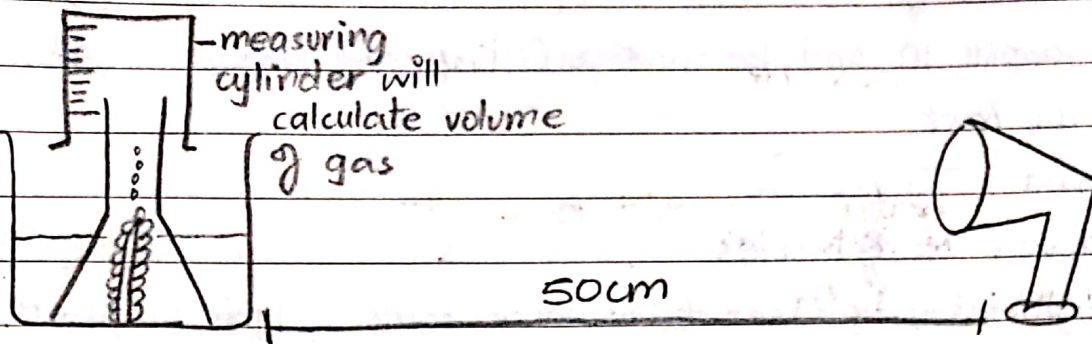 -measuring
cylinder will
calculate volume
of gas
50cm